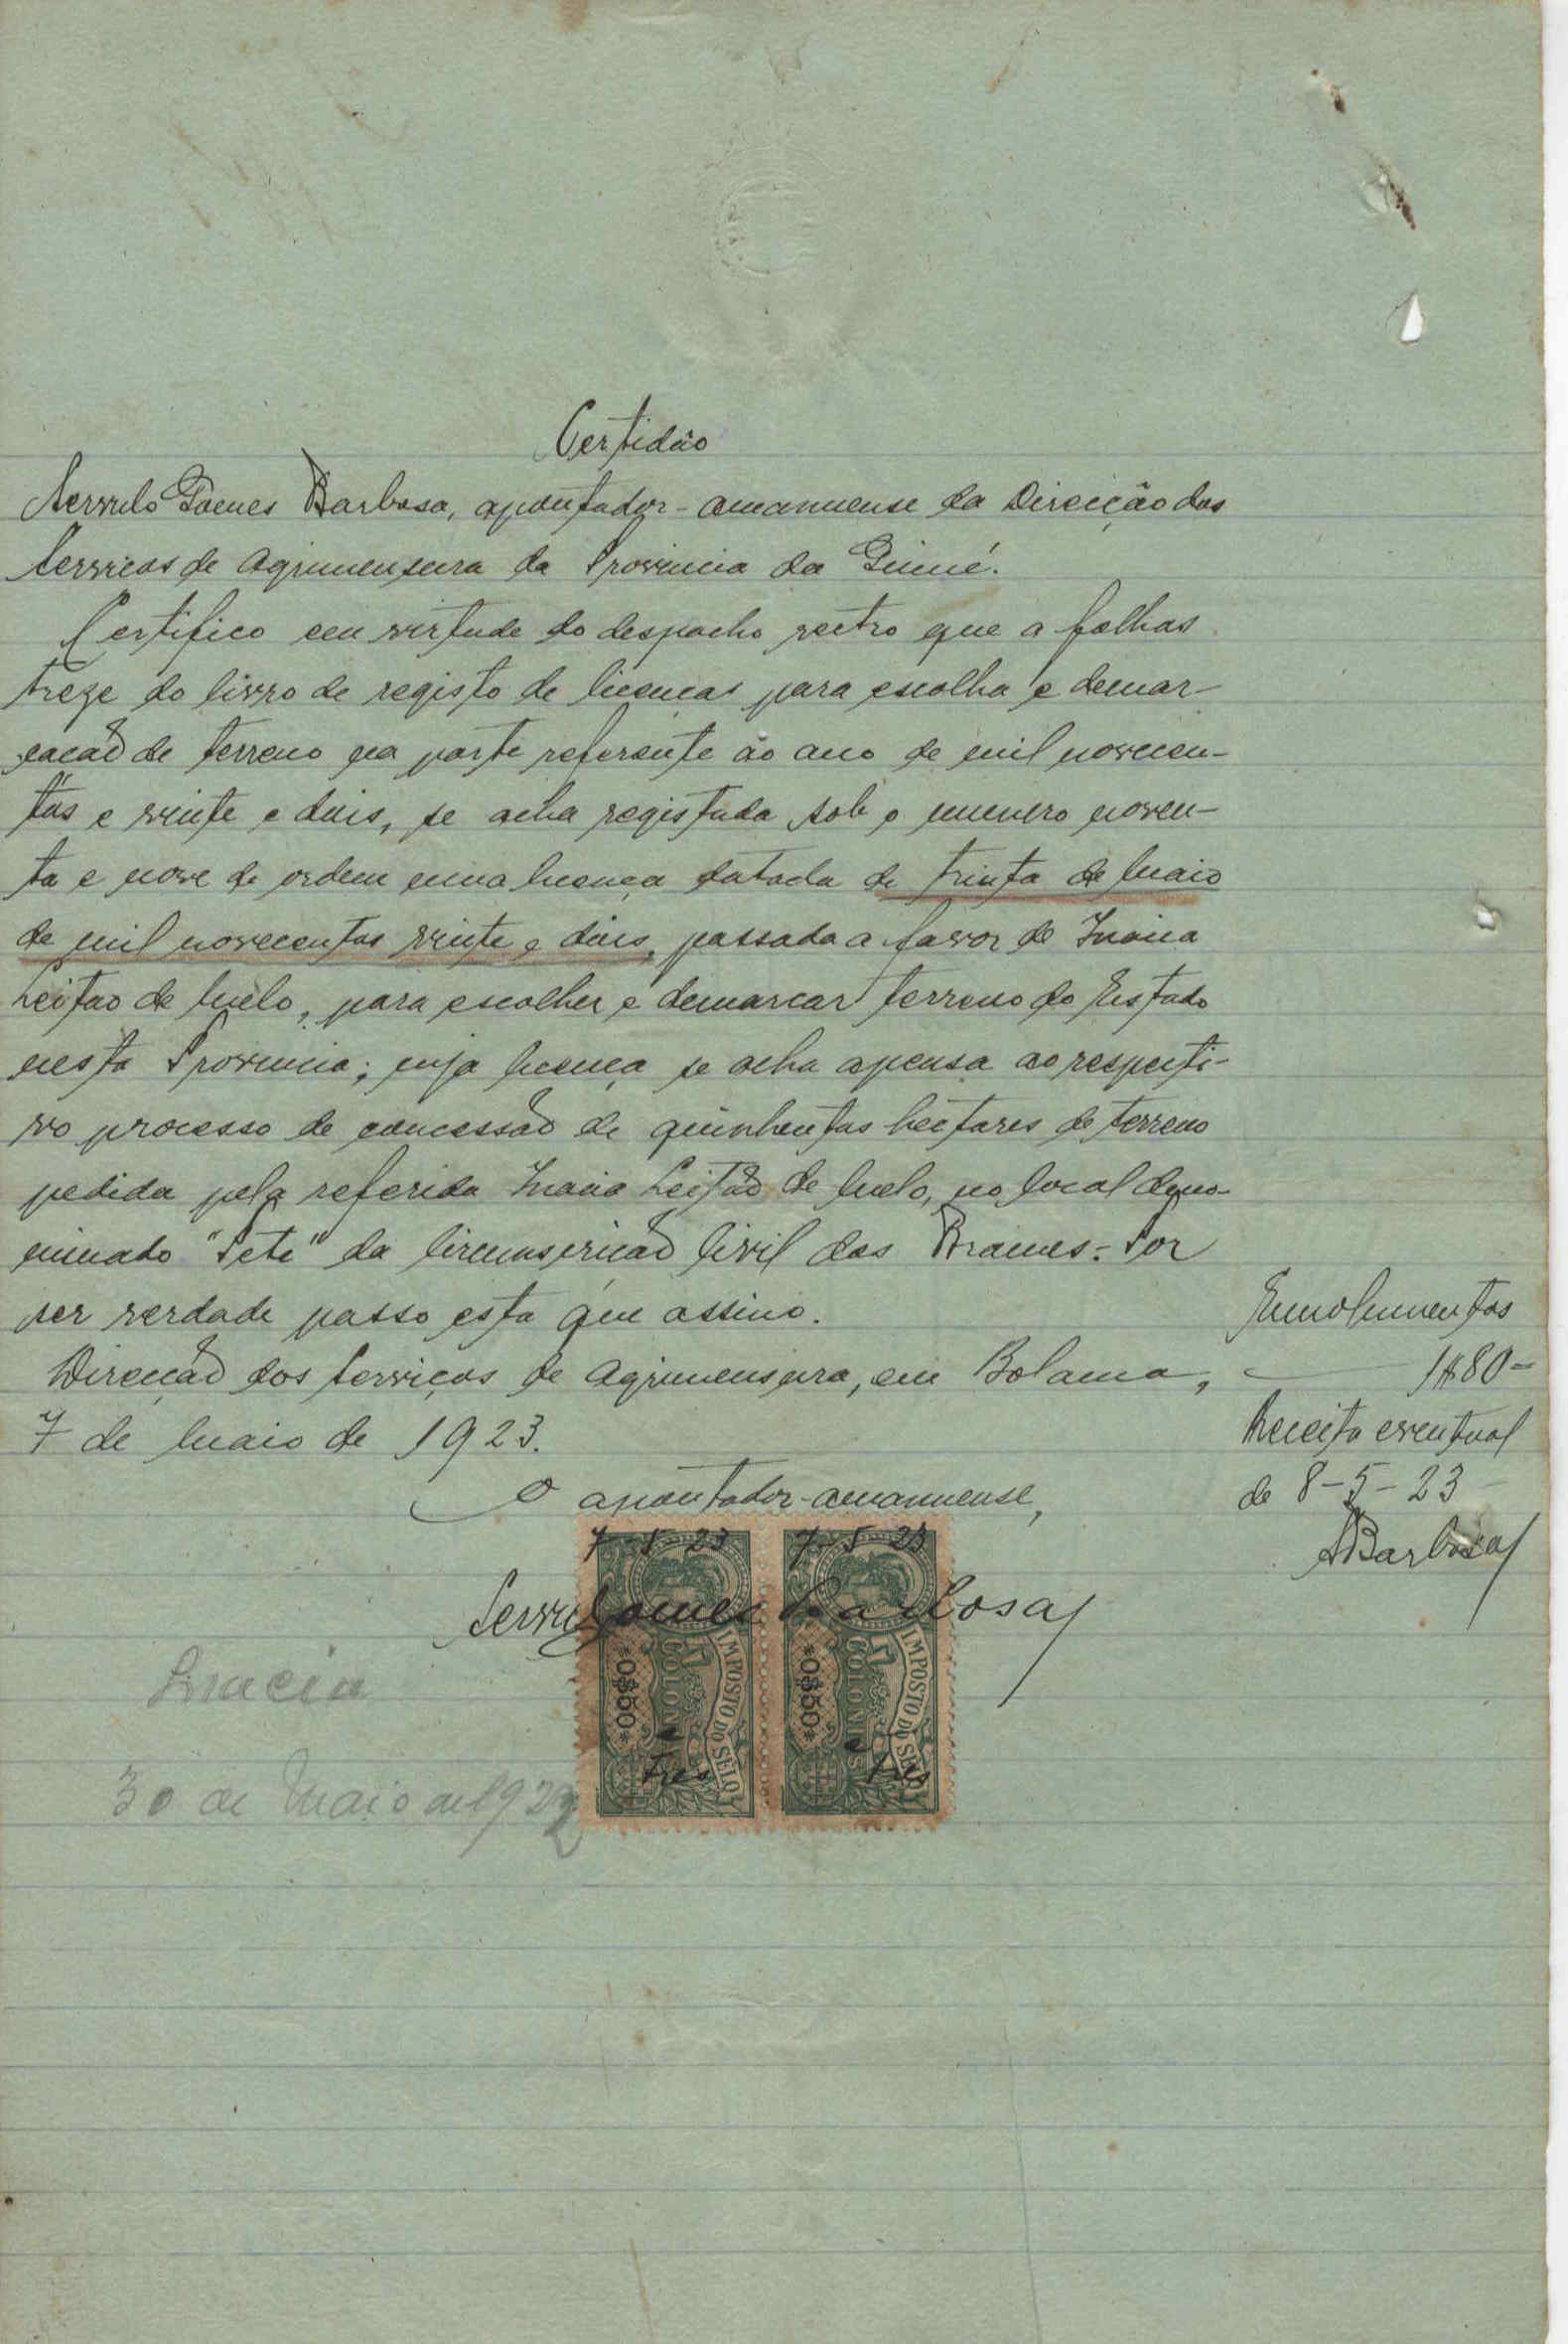 Certidão
Servulo Gomes Barbosa, apontador-amanuense da Direcção dos
Serviços de Agrimensura da Provincia da Guiné.
Certifico em virtude do despacho rectro que a folhas
treze do livro de registo de licenças para escolha e demar-
cação de terreno na parte referente ao ano de mil novecen-
tos e vinte e dois, se acha registada sob o numero noven-
ta e nove de ordem uma licença datada de trinta de Maio
de mil novecentos vinte e dois, passada a favor de Inacia
Leitão de Melo, para escolher e demarcar terreno do Estado
nesta Provincia; cuja licença se acha apensa ao respecti-
vo processo de concessão de quinhentos hectares de terreno
pedida pela referida Inacia Leitão de Melo, no local deno-
minado "Petě" da Circunscrição Civil dos Brames.- Por
ser verdade passo esta que assino.
Direcção dos Serviços de Agrimensura, em Bolama,
7 de Maio de 1923.
O apontador-amanuense,
7-5-23 7-5-23
Servulo Gomes Barbosa
IMPOSTO DO SÊLO
COLONIAS
*0$50*
e
tres
IMPOSTO DO SÊLO
COLONIAS
*0$50*
e
tres
Inacia
30 de Maio de 1922
Emolumentos
1$80-
Receita eventual
de 8-5-23
SBarbosa